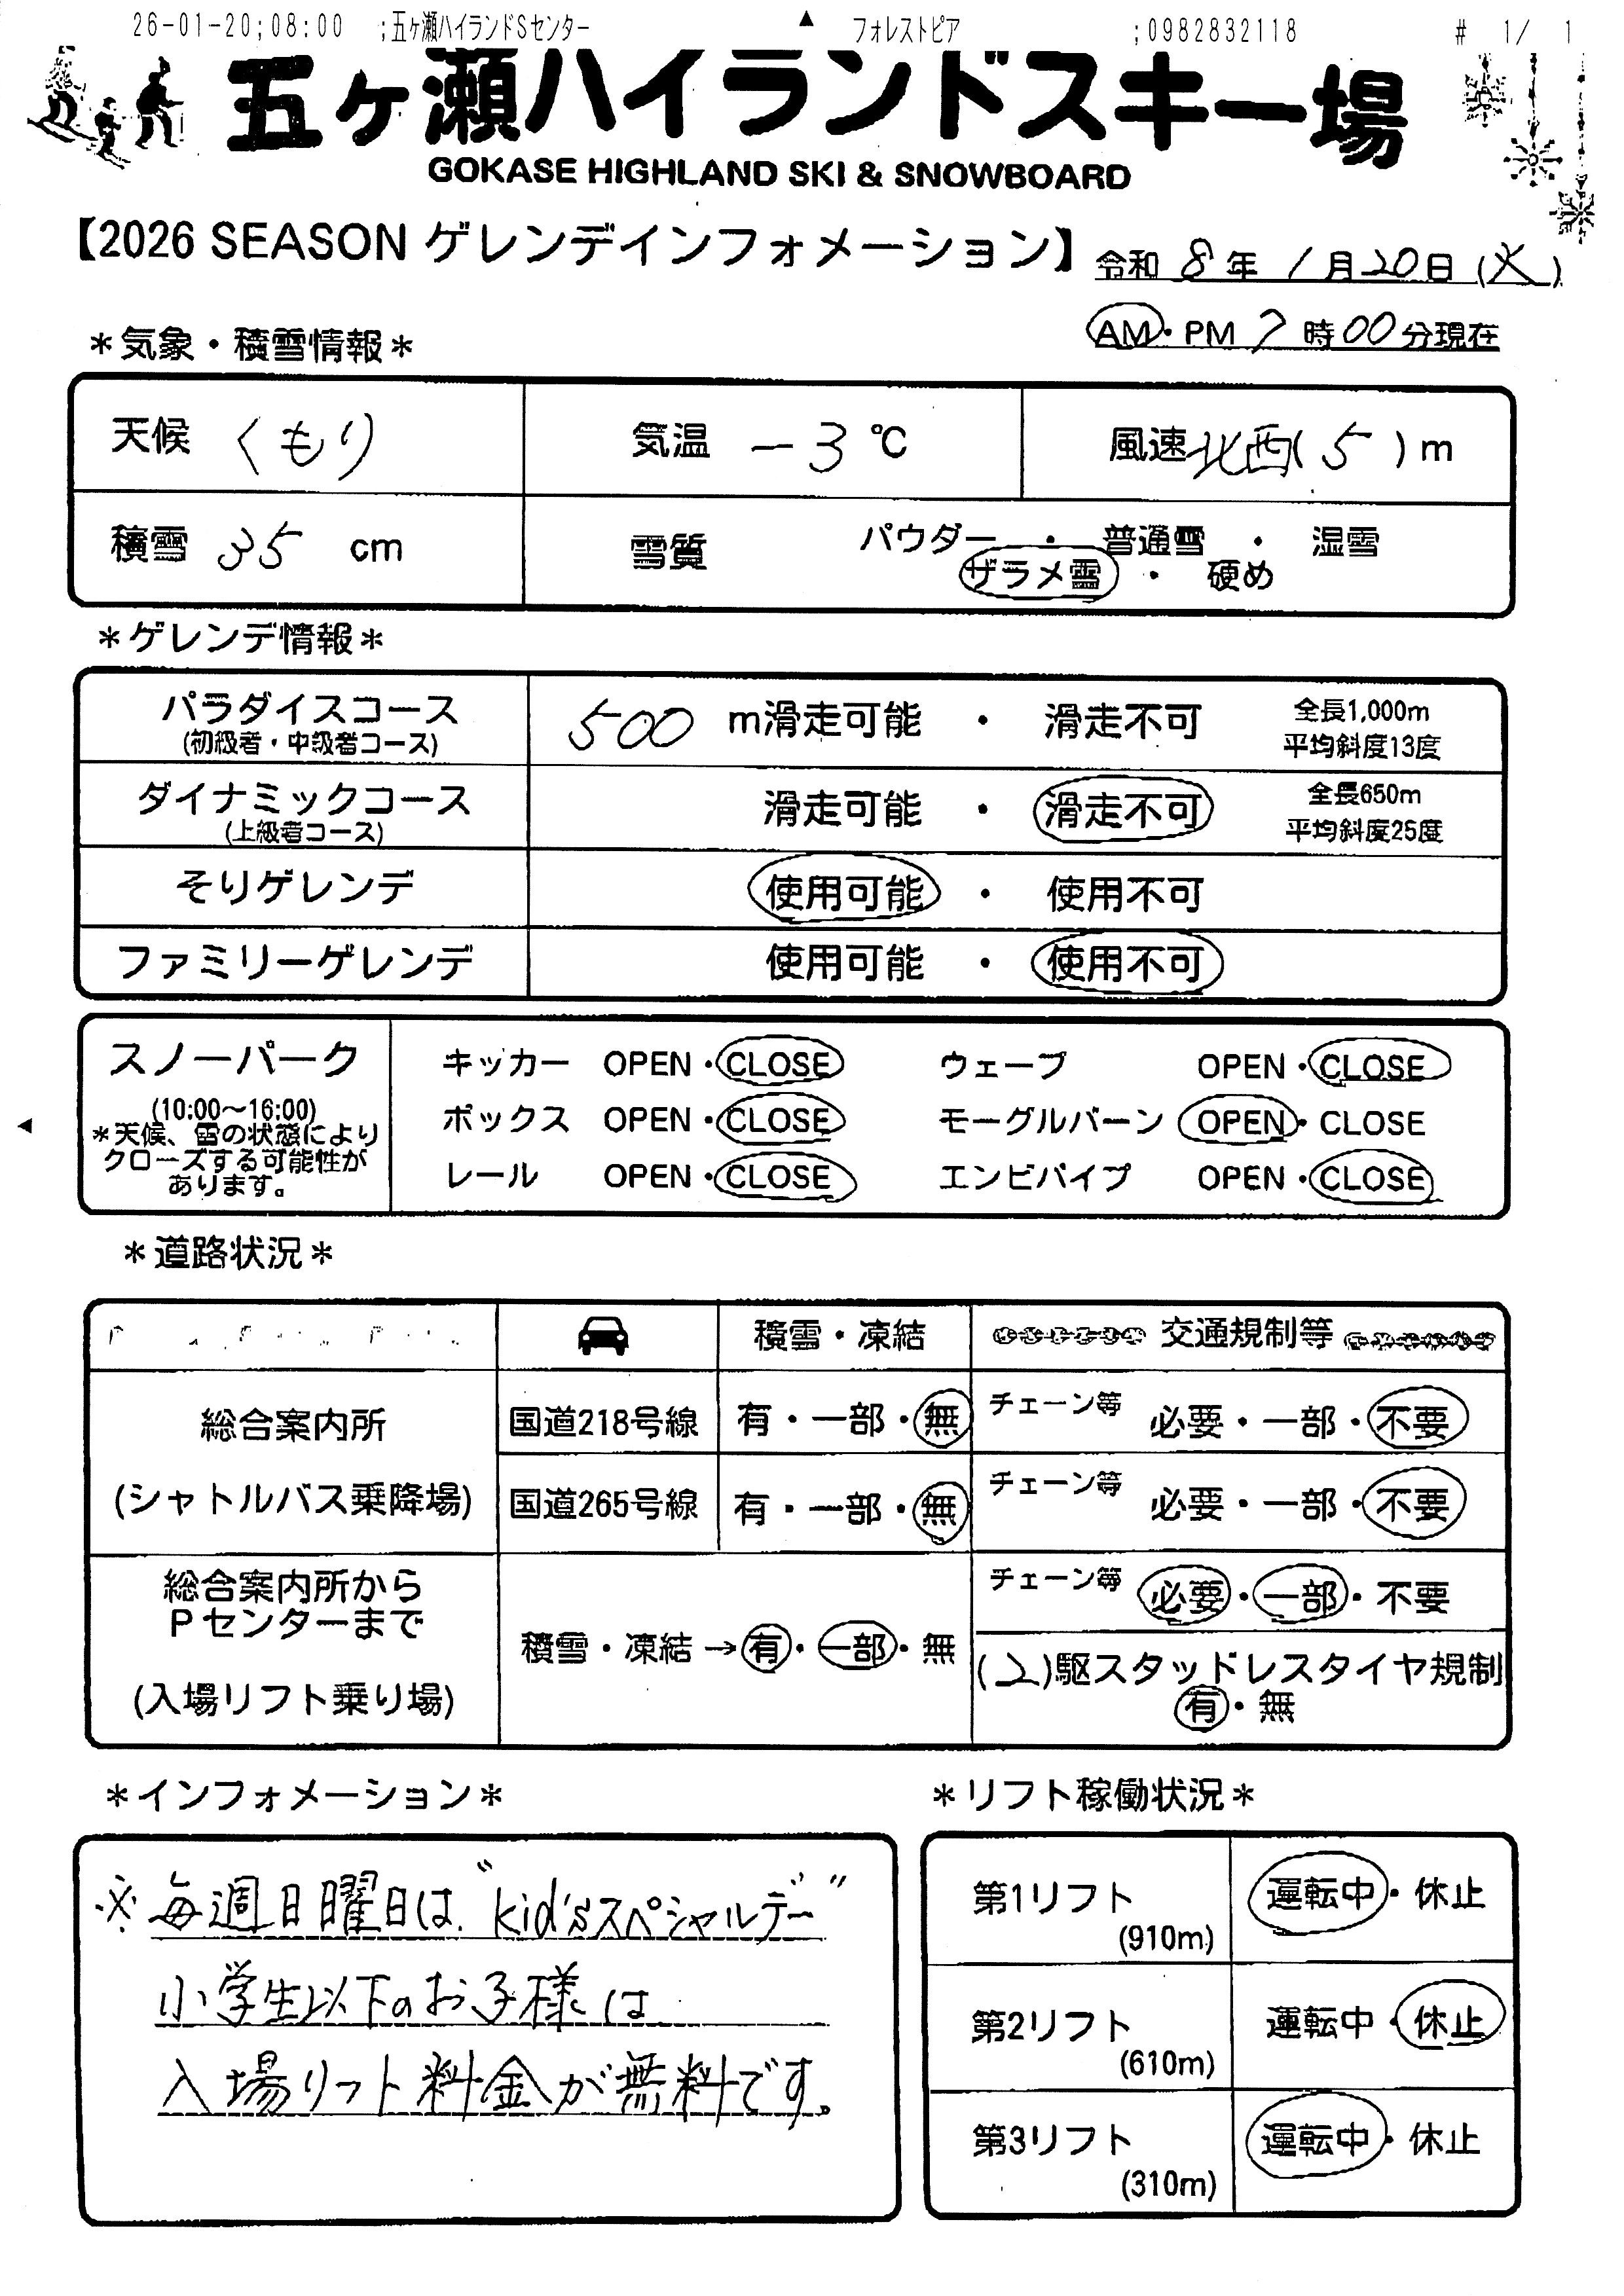 26-01-20;08:00 ;五ヶ瀬ハイランドSセンター ▲ フォレストピア ;0982832118 # 1/ 1
五ヶ瀬ハイランドスキー場
GOKASE HIGHLAND SKI & SNOWBOARD
【2026 SEASON ゲレンデインフォメーション】 令和 8 年 1 月 20 日 (火)
AM・PM 7 時 00 分現在
＊気象・積雪情報＊
天候 くもり 気温 -3 ℃ 風速 北西( 5 ) m
積雪 35 cm 雪質 パウダー ・ 普通雪 ・ 湿雪
ザラメ雪 ・ 硬め
＊ゲレンデ情報＊
パラダイスコース 500 m滑走可能 ・ 滑走不可 全長1,000m
(初級者・中級者コース) 平均斜度13度
ダイナミックコース 滑走可能 ・ 滑走不可 全長650m
(上級者コース) 平均斜度25度
そりゲレンデ 使用可能 ・ 使用不可
ファミリーゲレンデ 使用可能 ・ 使用不可
スノーパーク キッカー OPEN・CLOSE ウェーブ OPEN・CLOSE
(10:00～16:00) ボックス OPEN・CLOSE モーグルバーン OPEN・CLOSE
＊天候、雪の状態により
クローズする可能性が レール OPEN・CLOSE エンビパイプ OPEN・CLOSE
あります。
＊道路状況＊
積雪・凍結 交通規制等
総合案内所 国道218号線 有・一部・無 チェーン等 必要・一部・不要
(シャトルバス乗降場) 国道265号線 有・一部・無 チェーン等 必要・一部・不要
総合案内所から チェーン等 必要・一部・不要
Pセンターまで 積雪・凍結→有・一部・無
(入場リフト乗り場) (2)駆スタッドレスタイヤ規制
有・無
＊インフォメーション＊
※毎週日曜日は"kid'sスペシャルデー"
小学生以下のお子様は
入場リフト料金が無料です。
＊リフト稼働状況＊
第1リフト 運転中・休止
(910m)
第2リフト 運転中・休止
(610m)
第3リフト 運転中・休止
(310m)